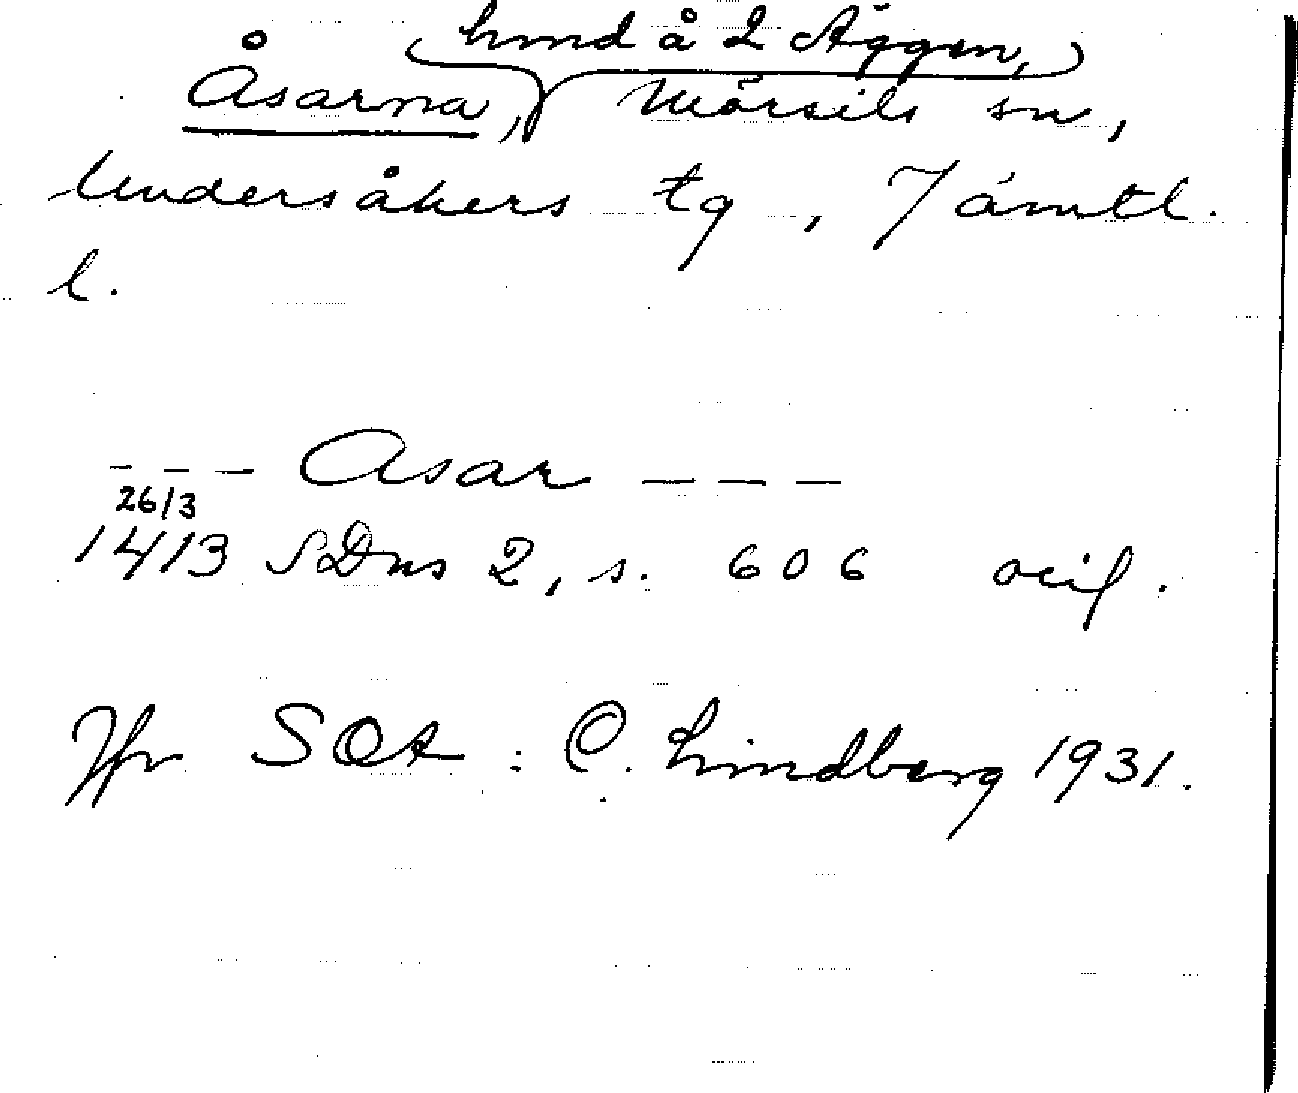 hmd å 2 Äggen,
Åsarna, Mörsils sn,
Undersåkers tg, Jämtl.
l.
--- Asar ---
26/3
1413 SDns 2, s. 606 avif.
Jfr SOA: C. Lindberg 1931.